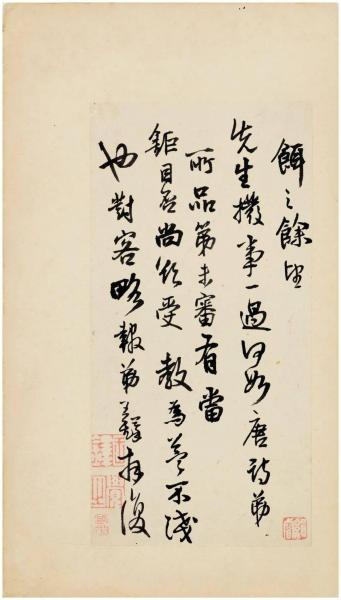 餌之餘望
先生撥事一過何如唐詩弟
所品第未審有當
鉅目否尚欲受教為益不淺
也對客略報弟拜復